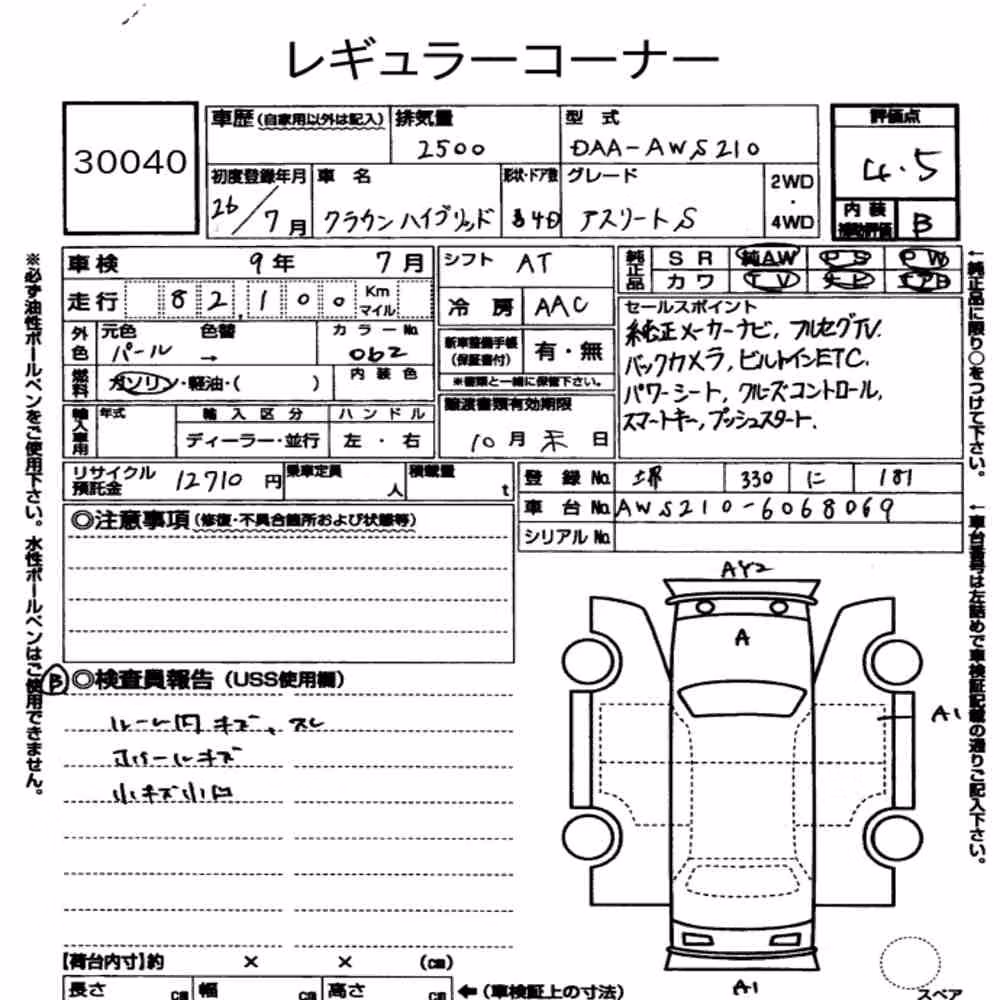 レギュラーコーナー
30040
車歴 (自家用以外は記入)
排気量
2500
型式
DAA-AWS210
評価点
4.5
内装補助評価 B
初度登録年月
26/7月
車名
クラウン ハイブリッド
形状・ドア数
4D
グレード
アスリートS
2WD
・
4WD
車検 9年 7月
走行 82,100 Km マイル
外色
元色 色替
パール →
カラーNo.
062
燃料
ガソリン・軽油・( )
内装色
輸入車用
年式
輸入区分
ハンドル
ディーラー・並行
左・右
シフト AT
冷房 AAC
新車整備手帳
(保証書付)
有・無
※書類と一緒に保管下さい。
譲渡書類有効期限
10月末日
純正品
SR 純AW PS PW
カワ TV ナビ エアB
セールスポイント
純正メーカーナビ, フルセグTV.
バックカメラ, ビルトインETC.
パワーシート, クルーズコントロール,
スマートキー, プッシュスタート.
リサイクル預託金 12710円
乗車定員 人
積載量 t
登録No. 堺 330 に 181
車台No. AWS210-6068069
シリアルNo.
◎注意事項 (修復・不具合箇所および状態等)
B
◎検査員報告 (USS使用欄)
ルーム内キズ、スレ
小キズ小凹
AY2
A
A1
A1
スペア
【荷台内寸】約 × × (cm)
長さ cm 幅 cm 高さ cm
←(車検証上の寸法)
※必ず油性ボールペンをご使用下さい。水性ボールペンはご使用できません。
←純正品に限り○をつけて下さい。
←車台番号は左詰めで車検証記載の通りご記入下さい。